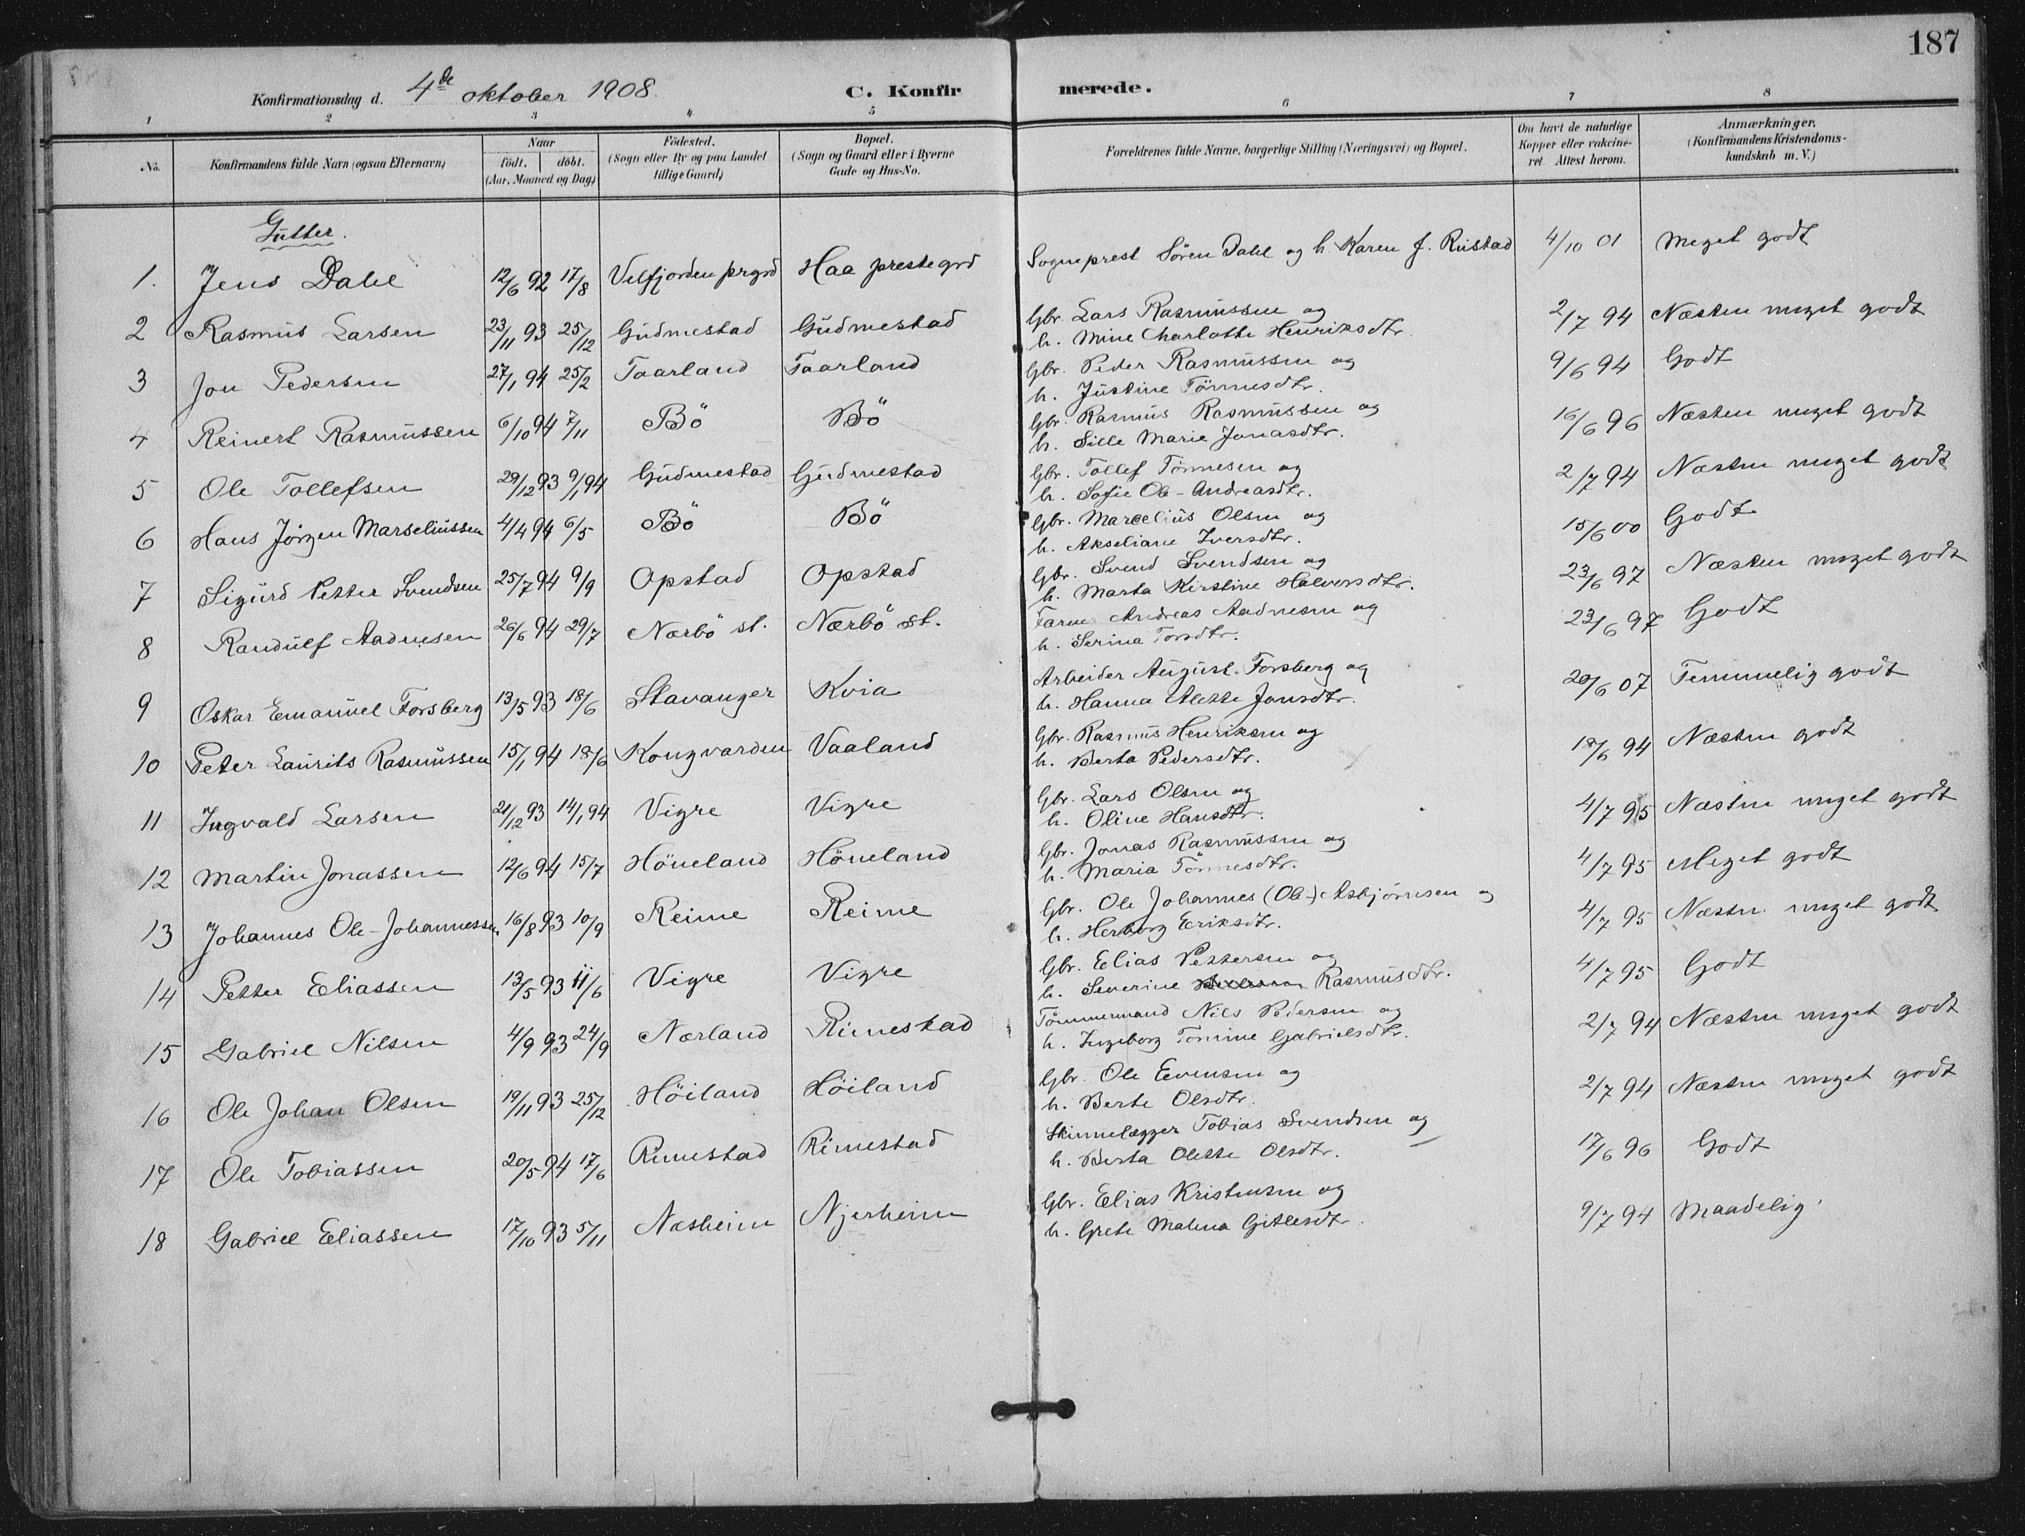 187
Konfirmationsdag d. 4de oktober 1908. C. Konfirmerede.
1 2 3 4 5 6 7 8
No. Konfirmandens fulde Navn (ogsaa Efternavn) Naar födt. döbt. (Aar, Maaned og Dag) Födested. (Sogn eller By og paa Landet tillige Gaard) Bopæl. (Sogn og Gaard eller i Byerne Gade og Hus-No. Forældrenes fulde Navne, borgerlige Stilling (Næringsvei) og Bopæl. Om havt de naturlige Kopper eller vakcineret. Attest herom. Anmærkninger. (Konfirmandens Kristendomskundskab m. V.)
Gutter.
1. Jens Dahl 12/6 92 17/8 Velfjorden prgrd Haa prestegrd Sogneprest Sören Dahl og h. Karen f. Rustad 4/10 01 Meget godt
2 Rasmus Larsen 23/11 93 25/12 Gudmestad Gudmestad Gbr. Lars Rasmussen og
h. Mine Charlotte Henriksdtr. 2/7 94 Næsten meget godt
3 Jon Pedersen 27/1 94 25/2 Taarland Taarland Gbr. Peder Rasmussen og
h. Justine Tönnesdtr. 9/6 94 Godt
4 Reinert Rasmussen 6/10 94 7/11 Bö Bö Gbr. Rasmus Rasmussen og
h. Sille Marie Jonasdtr. 16/6 96 Næsten meget godt
5 Ole Tollefsen 29/12 93 9/1 94 Gudmestad Gudmestad Gbr. Tollef Tönnesen og
h. Sofie Ole-Andreasdtr. 2/7 94 Næsten meget godt
6 Hans Jörgen Marseliussen 4/4 94 6/5 Bö Bö Gbr. Marcelius Olsen og
h. Akseliane Iversdtr. 15/6 00 Godt
7 Sigurd Petter Svendsen 25/7 94 9/9 Opstad Opstad Gbr. Svend Svendsen og
h. Marta Kirstine Halvorsdtr. 23/6 97 Næsten meget godt
8 Randulf Aadnesen 26/6 94 29/7 Nærbö st. Nærbö st. Andreas Aadnesen og
h. Serina Torsdtr. 23/6 97 Godt
9 Oskar Emanuel Forsberg 13/5 93 18/6 Stavanger Kvia Arbeider August Forsberg og
h. Hanna Alette Jonsdtr. 20/6 07 Temmelig godt
10 Peter Laurits Rasmussen 15/1 94 18/6 Kongvarden Vaaland Gbr. Rasmus Henriksen og
h. Berta Pedersdtr. 18/6 94 Næsten godt
11 Ingvald Larsen 21/12 93 14/1 94 Vigre Vigre Gbr. Lars Olsen og
h. Oline Hansdtr. 4/7 95 Næsten meget godt
12 Martin Jonassen 12/6 94 15/7 Höneland Höneland Gbr. Jonas Rasmussen og
h. Maria Tönnesdtr. 4/7 95 Meget godt
13 Johannes Ole-Johannessen 16/8 93 10/9 Reime Reime Gbr. Ole Johannes (Ole-) Asbjörnsen og
h. Herborg Eriksdtr. 4/7 95 Næsten meget godt
14 Petter Eliassen 13/5 93 11/6 Vigre Vigre Gbr. Elias Pettersen og
h. Severine Rasmusdtr. 4/7 95 Godt
15 Gabriel Nilsen 4/9 93 24/9 Nærland Rimestad Tömmermand Nils Pedersen og
h. Ingeborg Tomine Gabrielsdtr. 2/7 94 Næsten meget godt
16 Ole Johan Olsen 19/11 93 25/12 Höiland Höiland Gbr. Ole Evensen og
h. Berte Olsdtr. 2/7 94 Næsten meget godt
17 Ole Tobiassen 20/5 94 17/6 Rimestad Rimestad Skinnelægger Tobias Svendsen og
h. Berta Olette Olsdtr. 17/6 96 Godt
18 Gabriel Eliassen 17/10 93 5/11 Næsheim Njerheim Gbr. Elias Kristensen og
h. Grete Malena Gitlesdtr. 9/7 94 Maadelig